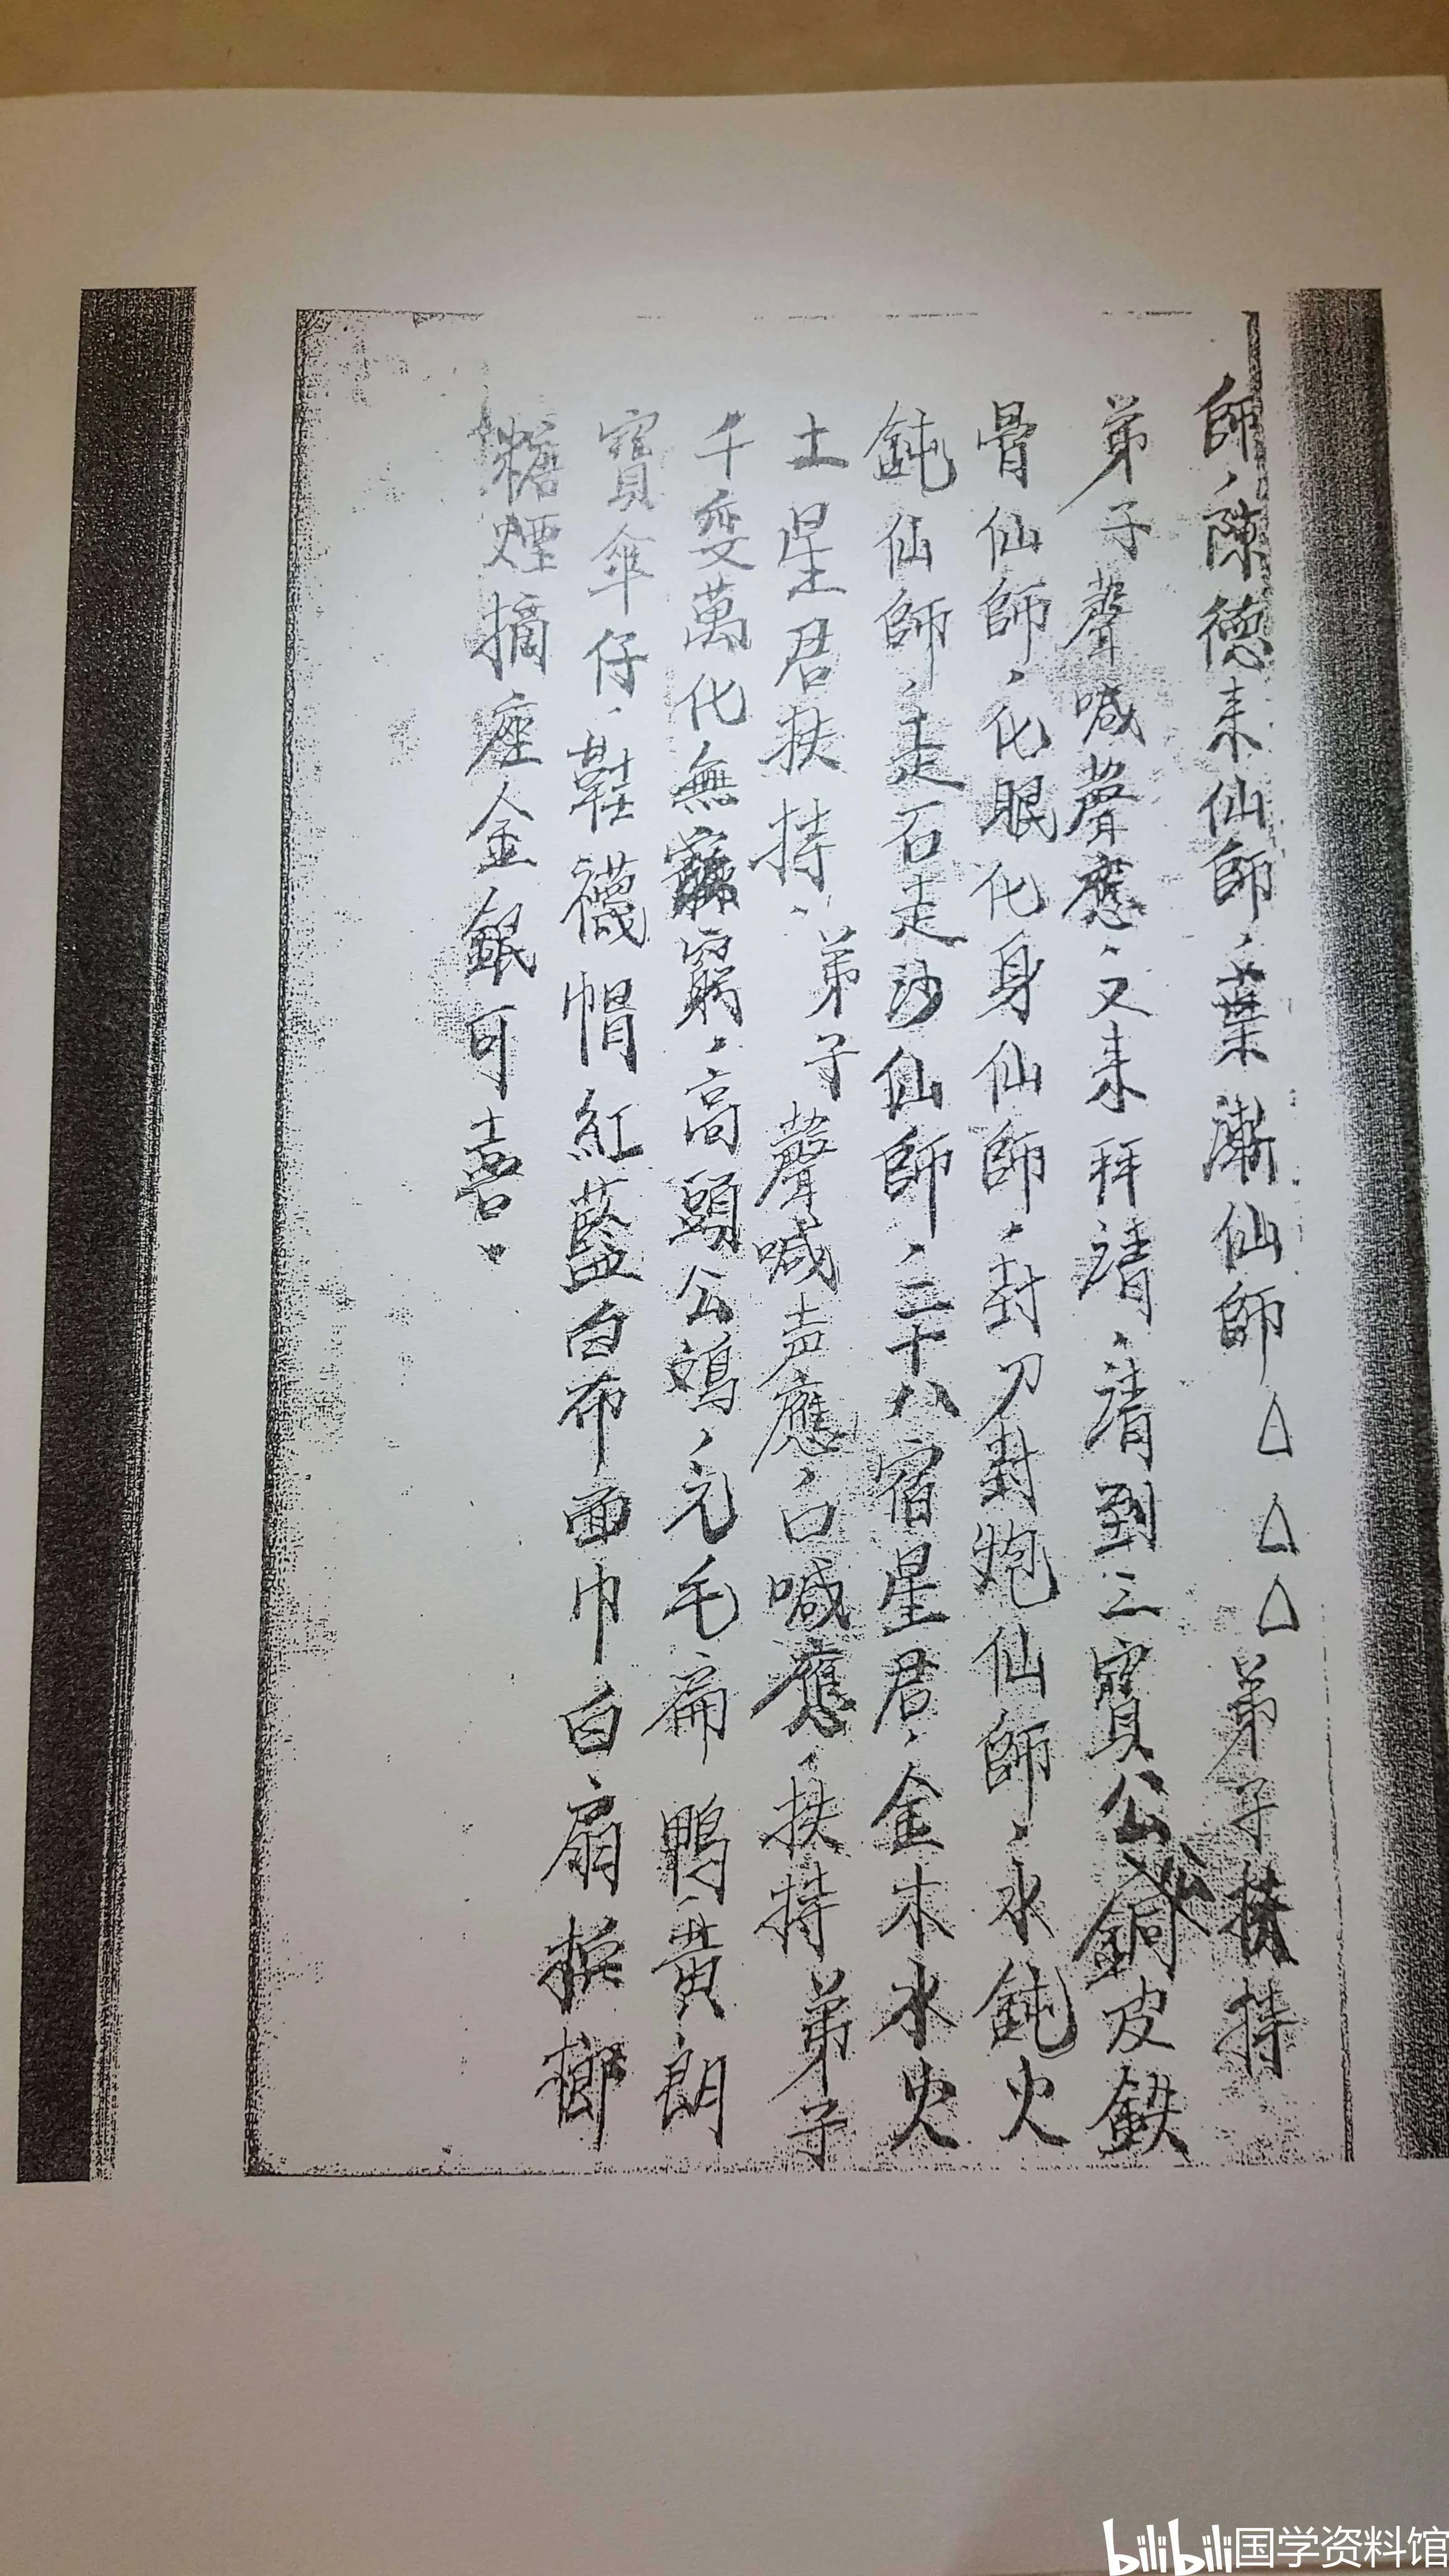 師、陳德来仙師、葉漸仙師△△△弟子扶持
弟子聲喊聲應、又来拜請、請到三寶公公銅皮鉄
骨仙師、化眼化身仙師、封刀封炮仙師、水鈍火
鈍仙師、走石走沙仙師、二十八宿星君、金木水火
土星君扶持、弟子聲喊声應、口喊應、扶持弟子
千变萬化無窮、高頭公鴆、元毛扁鴨、黄朗
寳傘仔、鞋襪帽紅藍白布面巾白扇梹榔
糖煙摘座金銀可喜、
bilibili国学资料馆